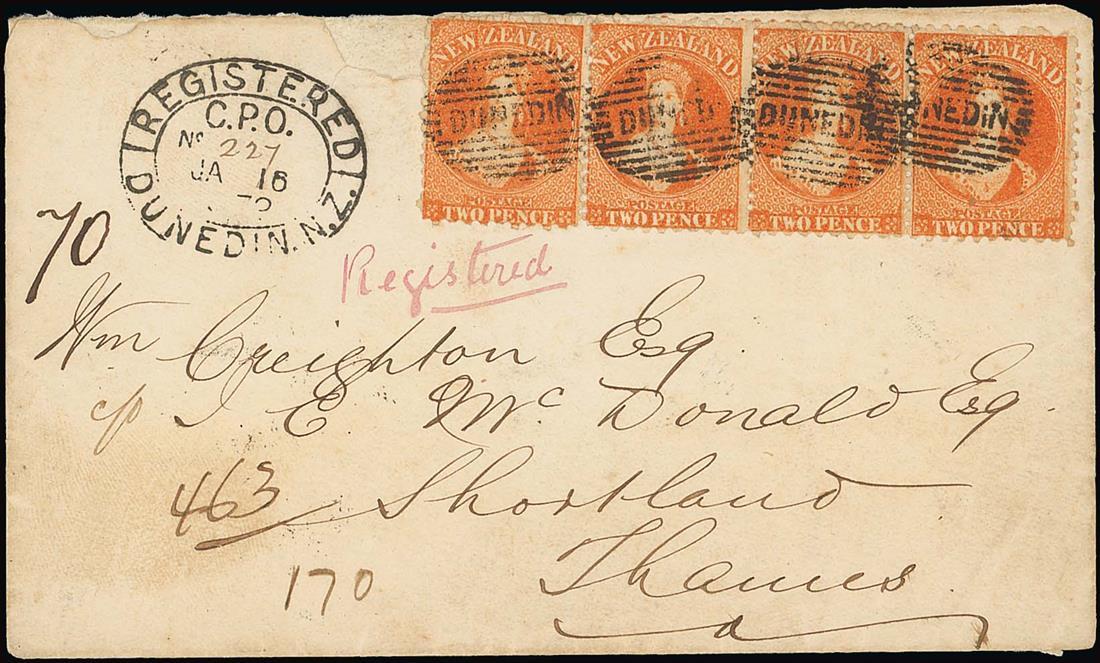 NEW ZEALAND NEW ZEALAND NEW ZEALAND NEW
DUNEDIN DUNEDIN DUNEDIN NEDIN
POSTAGE POSTAGE POSTAGE POSTAGE
TWO PENCE TWO PENCE TWO PENCE TWO PENCE
REGISTERED
C.P.O.
No 227
JA 16
DUNEDIN. N.Z.
70
Registered
Wm Creighton Esq
c/o J E Mc Donald Esq.
463 Shortland
170 Thames